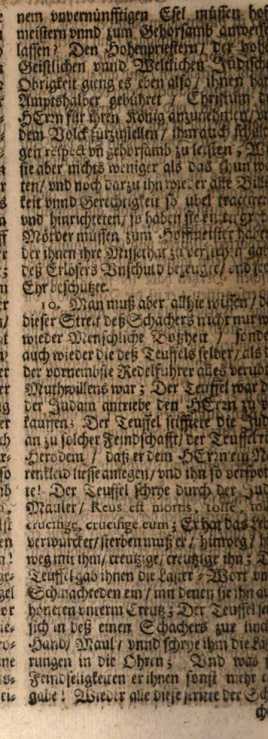 nem unvernünfftigen Esel müssen hof
meistern vnnd zum Gehorsamb anweise
lassen? Den Hohenpriestern / der vohe
Geistlichen vnnd Weltlichen Jüdische
Obrigkeit gieng es eben also / ihnen hat
Ampteshalber gebühret / Christum d
HErrn für ihren König anzunehmen / v
dem Volck fürzustellen / ihm auch schuldi
gen respect vn gehorsamb zu leisten
sie aber nichts weniger als das
ten / vnd noch darzu ihn wieder alle Billi
keit vnnd Gerechtigkeit so übel tractire
vnd hinrichteten / so haben sie
Mörder müssen zum Hoffmeister habe
der ihnen ihre Missethat
deß Erlösers Vnschuld bezeugte / vnd
Ehr beschützte.
10. Man muß aber allhie wissen / d
dieser Streit deß Schächers nicht nur w
wieder Menschliche Boßheit / sonde
auch wieder die deß Teuffels selber / als
der vornembste Redelführer alles verübt
Muthwillens war; Der Teuffel war d
der Judam antriebe den HErrn zu v
kauffen; Der Teuffel stifftete die Jud
an zu solcher Feindschafft / der Teuffel
Herodem / daß er dem HErrn ein N
renkleid liesse anlegen / vnd ihn so verspot
te! Der Teuffel schrye durch der Jud
Mäuler / Reus est mortis, tolle, tol
crucifige, crucifige eum; Er hat das Leb
verwürcket / sterben muß er / hinweg / h
weg mit ihm / creutzige / creutzige ihn; D
Teuffel gab ihnen die Läster-Wort vn
Schmachreden ein / mit denen sie ihn au
höneten vnterm Creutz; Der Teuffel
sich in deß einen Schächers
Hand / Maul / vnnd schrye ihm die Lä
rungen in die Ohren; Vnd was
Feindseligkeiten er ihnen sonst mehr
gabe! Wieder alle diese